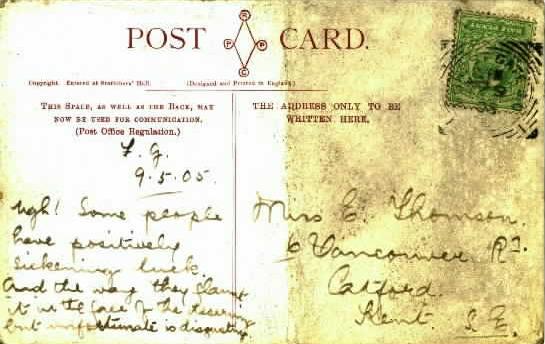 POST CARD.
R
P P
C
Copyright. Entered at Stationers' Hall. (Designed and Printed in England.)
THIS SPACE, AS WELL AS THE BACK, MAY
NOW BE USED FOR COMMUNICATION.
(Post Office Regulation.)
THE ADDRESS ONLY TO BE
WRITTEN HERE.
F. G.
9.5.05.
Ugh! Some people
have positively
sickening luck.
And the way they slam
it in the face of the deserving
but unfortunate is disgusting
Miss E. Thomson.
6 Vancouver Rd.
Catford.
Kent. S.E.